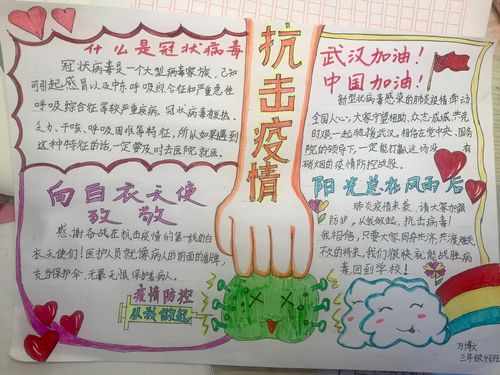 什么是冠状病毒
冠状病毒是一个大型病毒家族，已知
可引起感冒以及中东呼吸综合征和严重急性
呼吸综合征等较严重疾病，冠状病毒
乏力，干咳、呼吸困难等特征，所以如果遇到
这种特征的话一定要及时去医院就医。
向白衣天使
致敬
感谢奋战在抗击疫情的第一线的白
衣天使们！医护人员就像病人的前面的盾牌，
充当保护伞，无畏无惧保护着病人。
疫情防控
从我做起
抗击疫情
武汉加油！
中国加油！
新型状病毒感染的肺炎疫情牵动
全国人心，大家守望相助、众志成城、共克
时艰一起驰援武汉，相信在党中央、国务
院的领导下，一定能打赢这场没
有硝烟的疫情防控战役。
阳光总在风雨后
肺炎疫情来袭，请大家加强
防护，从我做起，抗击病毒！
我相信，只要大家同舟共济，共渡难关
不久的将来，我们很快就能战胜病
毒回到学校！
万博文
三年级4班